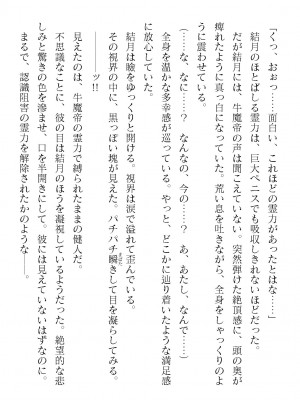 「くっ、おぉっ……面白い、これほどの霊力があったとはなっ……」
結月のほとばしる霊力は、巨大ペニスでも吸収しきれないほどだった。
だが結月には、牛魔帝の声は聞こえていない。突然弾けた絶頂感に、頭の奥が
痺れたように真っ白になっていた。荒い息を吐きながら、全身をしゃっくりのよ
うに震わせている。
（……な、なに……？　なんなの、今の……？　あ、あたし、なんで……）
全身を温かな多幸感が巡っている。やっと、どこかに辿り着いたような満足感
に放心していた。
結月は瞼をゆっくりと開ける。視界は涙で溢れて歪んでいる。
その視界の中に、黒っぽい塊が見えた。パチパチ瞬きして目を凝らしてみる。
――ッ!!
見えたのは、牛魔帝の霊力で縛られたままの健人だ。
不思議なことに、彼の目は結月のほうを凝視しているようだった。絶望的な悲
しみと驚きの色を滲ませ、口を半開きにして。彼には見えていないはずなのに。
まるで、認識阻害の霊力を解除されたかのような――